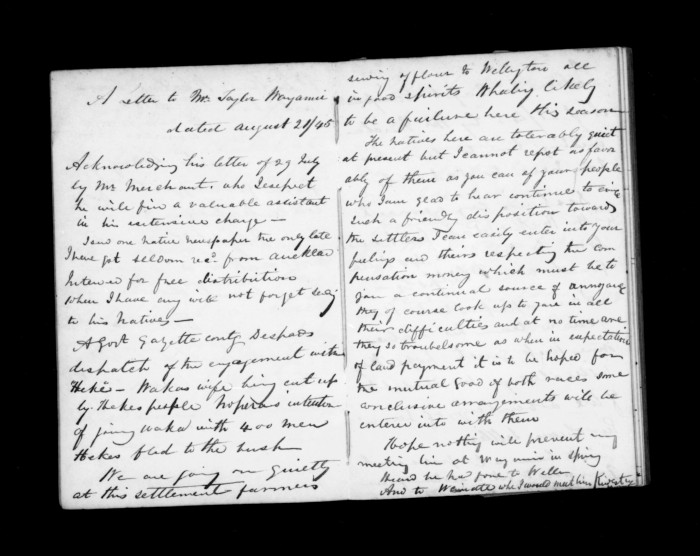 A Letter to Mr Taylor
dated august 21/45
Acknowledging his letter of 29 July
by Mr Merchant, who I expect
he will find a valuable assistant
in his extensive charge —
I send one native newspaper the only late
I have got seldom recd from auckland
Intended for free distribution
When I have any will not forget
to his Natives —
A Govt Gazette Despards
dispatch of the engagement with
Heke — Wakas wife being cut up
by Hekes people intention
of joining waka with 400 men
Hekes fled to the bush
We are going on quietly
at this settlement farmers
of flour to Wellington all
in good spirits Whaling likely
to be a failure here this season
The Natives here are tolerably quiet
at present but I cannot report as favor
ably of them as you can of your people
who I am glad to hear continue to
such a friendly disposition towards
the settlers I can easily enter into your
feelings and theirs respecting the com
pensation money which must be to
a continual source of annoyance
they of course look up to you in all
their difficulties and at no time are
they so troublesome as when in expectation
of land payment it is to be hoped for
the mutual good of both races some
conclusive arrangements will be
entered into with them
Hope nothing will prevent my
meeting him at in spring
Heard he had gone to Welln
And to Waimate